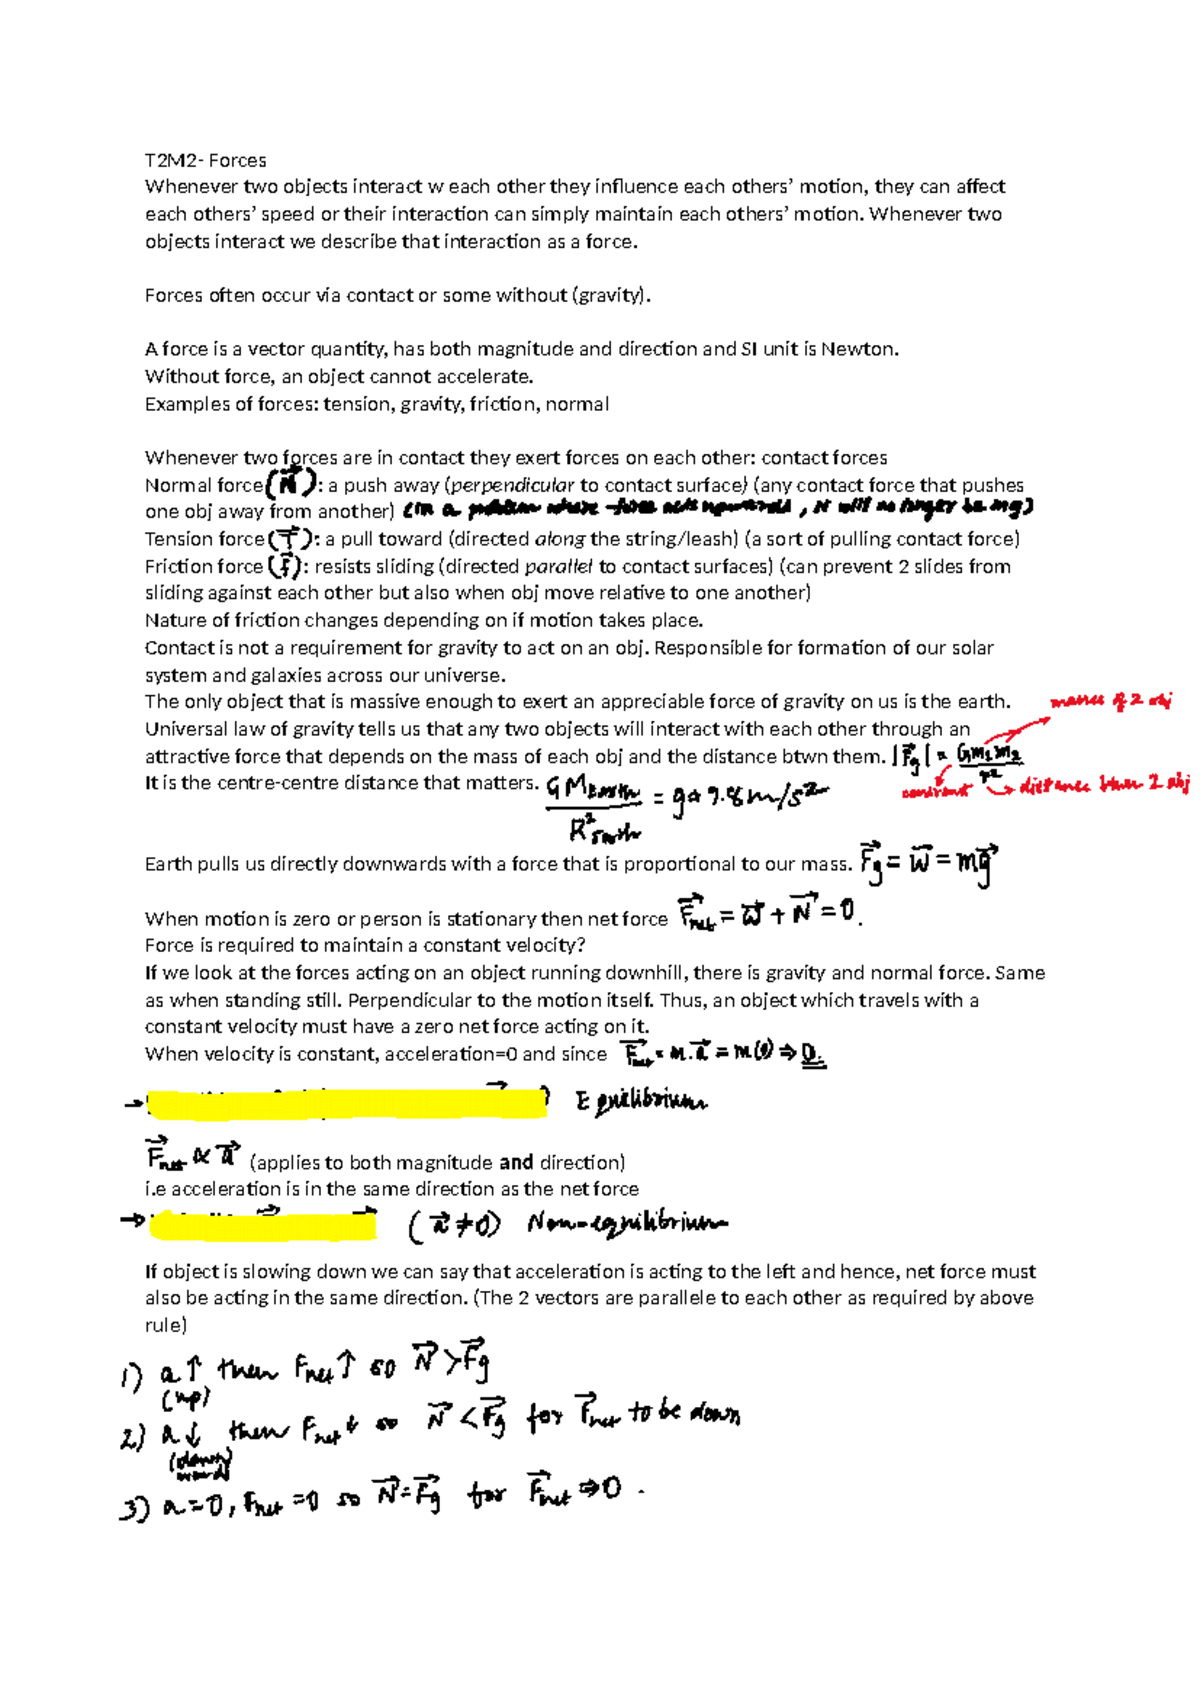 T2M2- Forces
Whenever two objects interact w each other they influence each others’ motion, they can affect
each others’ speed or their interaction can simply maintain each others’ motion. Whenever two
objects interact we describe that interaction as a force.
Forces often occur via contact or some without (gravity).
A force is a vector quantity, has both magnitude and direction and SI unit is Newton.
Without force, an object cannot accelerate.
Examples of forces: tension, gravity, friction, normal
Whenever two forces are in contact they exert forces on each other: contact forces
Normal force (N⃗): a push away (perpendicular to contact surface) (any contact force that pushes
one obj away from another) (in a problem where force acts upwards, N will no longer be mg)
Tension force (T⃗): a pull toward (directed along the string/leash) (a sort of pulling contact force)
Friction force (f⃗): resists sliding (directed parallel to contact surfaces) (can prevent 2 slides from
sliding against each other but also when obj move relative to one another)
Nature of friction changes depending on if motion takes place.
Contact is not a requirement for gravity to act on an obj. Responsible for formation of our solar
system and galaxies across our universe.
The only object that is massive enough to exert an appreciable force of gravity on us is the earth. masses of 2 obj
Universal law of gravity tells us that any two objects will interact with each other through an
attractive force that depends on the mass of each obj and the distance btwn them. |F⃗g| = Gm1m2/r²
constant → distance btwn 2 obj
It is the centre-centre distance that matters. GMEarth/R²Earth = g → 9.8m/s²
Earth pulls us directly downwards with a force that is proportional to our mass. F⃗g = w⃗ = mg⃗
When motion is zero or person is stationary then net force F⃗net = w⃗ + N⃗ = 0.
Force is required to maintain a constant velocity?
If we look at the forces acting on an object running downhill, there is gravity and normal force. Same
as when standing still. Perpendicular to the motion itself. Thus, an object which travels with a
constant velocity must have a zero net force acting on it.
When velocity is constant, acceleration=0 and since F⃗net = m.a⃗ = m(0) ⇒ 0.
→ Equilibrium
F⃗net ∝ a⃗ (applies to both magnitude and direction)
i.e acceleration is in the same direction as the net force
→ (a⃗ ≠ 0) Non-equilibrium
If object is slowing down we can say that acceleration is acting to the left and hence, net force must
also be acting in the same direction. (The 2 vectors are parallele to each other as required by above
rule)
1) a↑ then Fnet↑ so N⃗ > F⃗g
(up)
2) a↓ then Fnet↓ so N⃗ < F⃗g for F⃗net to be down
(downward)
3) a=0, Fnet=0 so N⃗ = F⃗g for F⃗net ⇒ 0.